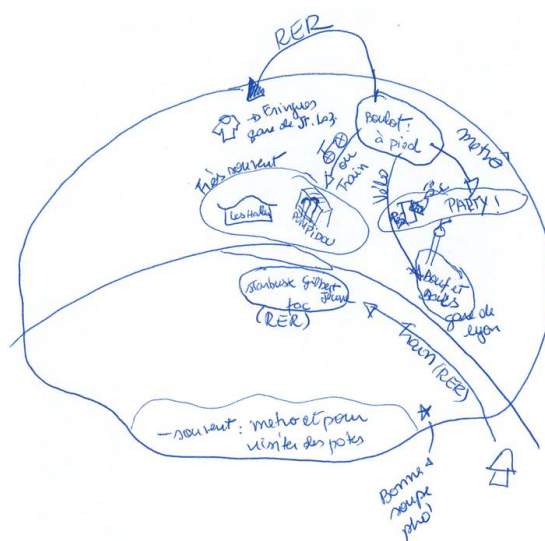 RER
→ Fringues
gare de St. Laz.
Boulot:
à pied
metro
ou
Train
Vélo
Très souvent
Les Halles
POMPIDOU
PARTY!
Bouf et
gare de
Lyon
Starbusk Gilbert
fac
(RER)
Train (RER)
- souvent: metro et pour
visiter des potes
Bonne
soupe
pho